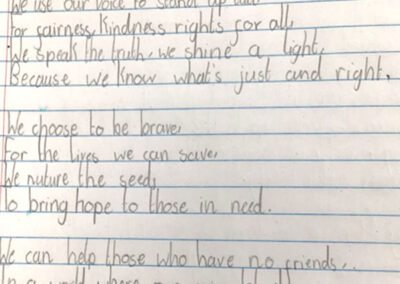 We use our voice to stand up
for fairness, kindness rights for all,
We speak the truth, we shine a light,
Because we know what's just and right.
We choose to be brave,
For the lives we can save,
We nuture the seed,
To bring hope to those in need.
We can help those who have no friends,
In a world where